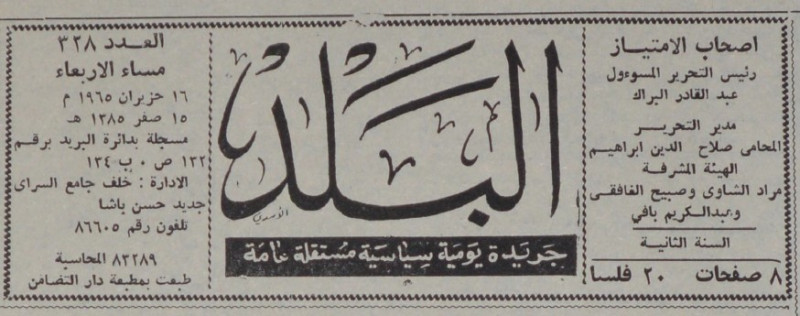 اصحاب الامتياز
رئيس التحرير المسوءول
عبد القادر البراك
مدير التحرير
المحامى صلاح الدين ابراهيم
الهيئة المشرفة
مراد الشاوى وصبيح الغافقى
وعبدالكريم بافي
السنة الثانية
٨ صفحات ٢٠ فلسا
البلد
الأسدي
جريدة يومية سياسية مستقلة عامة
العدد ٣٢٨
مساء الاربعاء
١٦ حزيران ١٩٦٥ م
١٥ صفر ١٣٨٥ هـ
مسجلة بدائرة البريد برقم
١٢٢ ص ٠ ب ١٣٤
الادارة : خلف جامع السراى
جديد حسن باشا
تلفون رقم ٨٦٦٠٥
٨٣٢٨٩ المحاسبة
طبعت بمطبعة دار التضامن